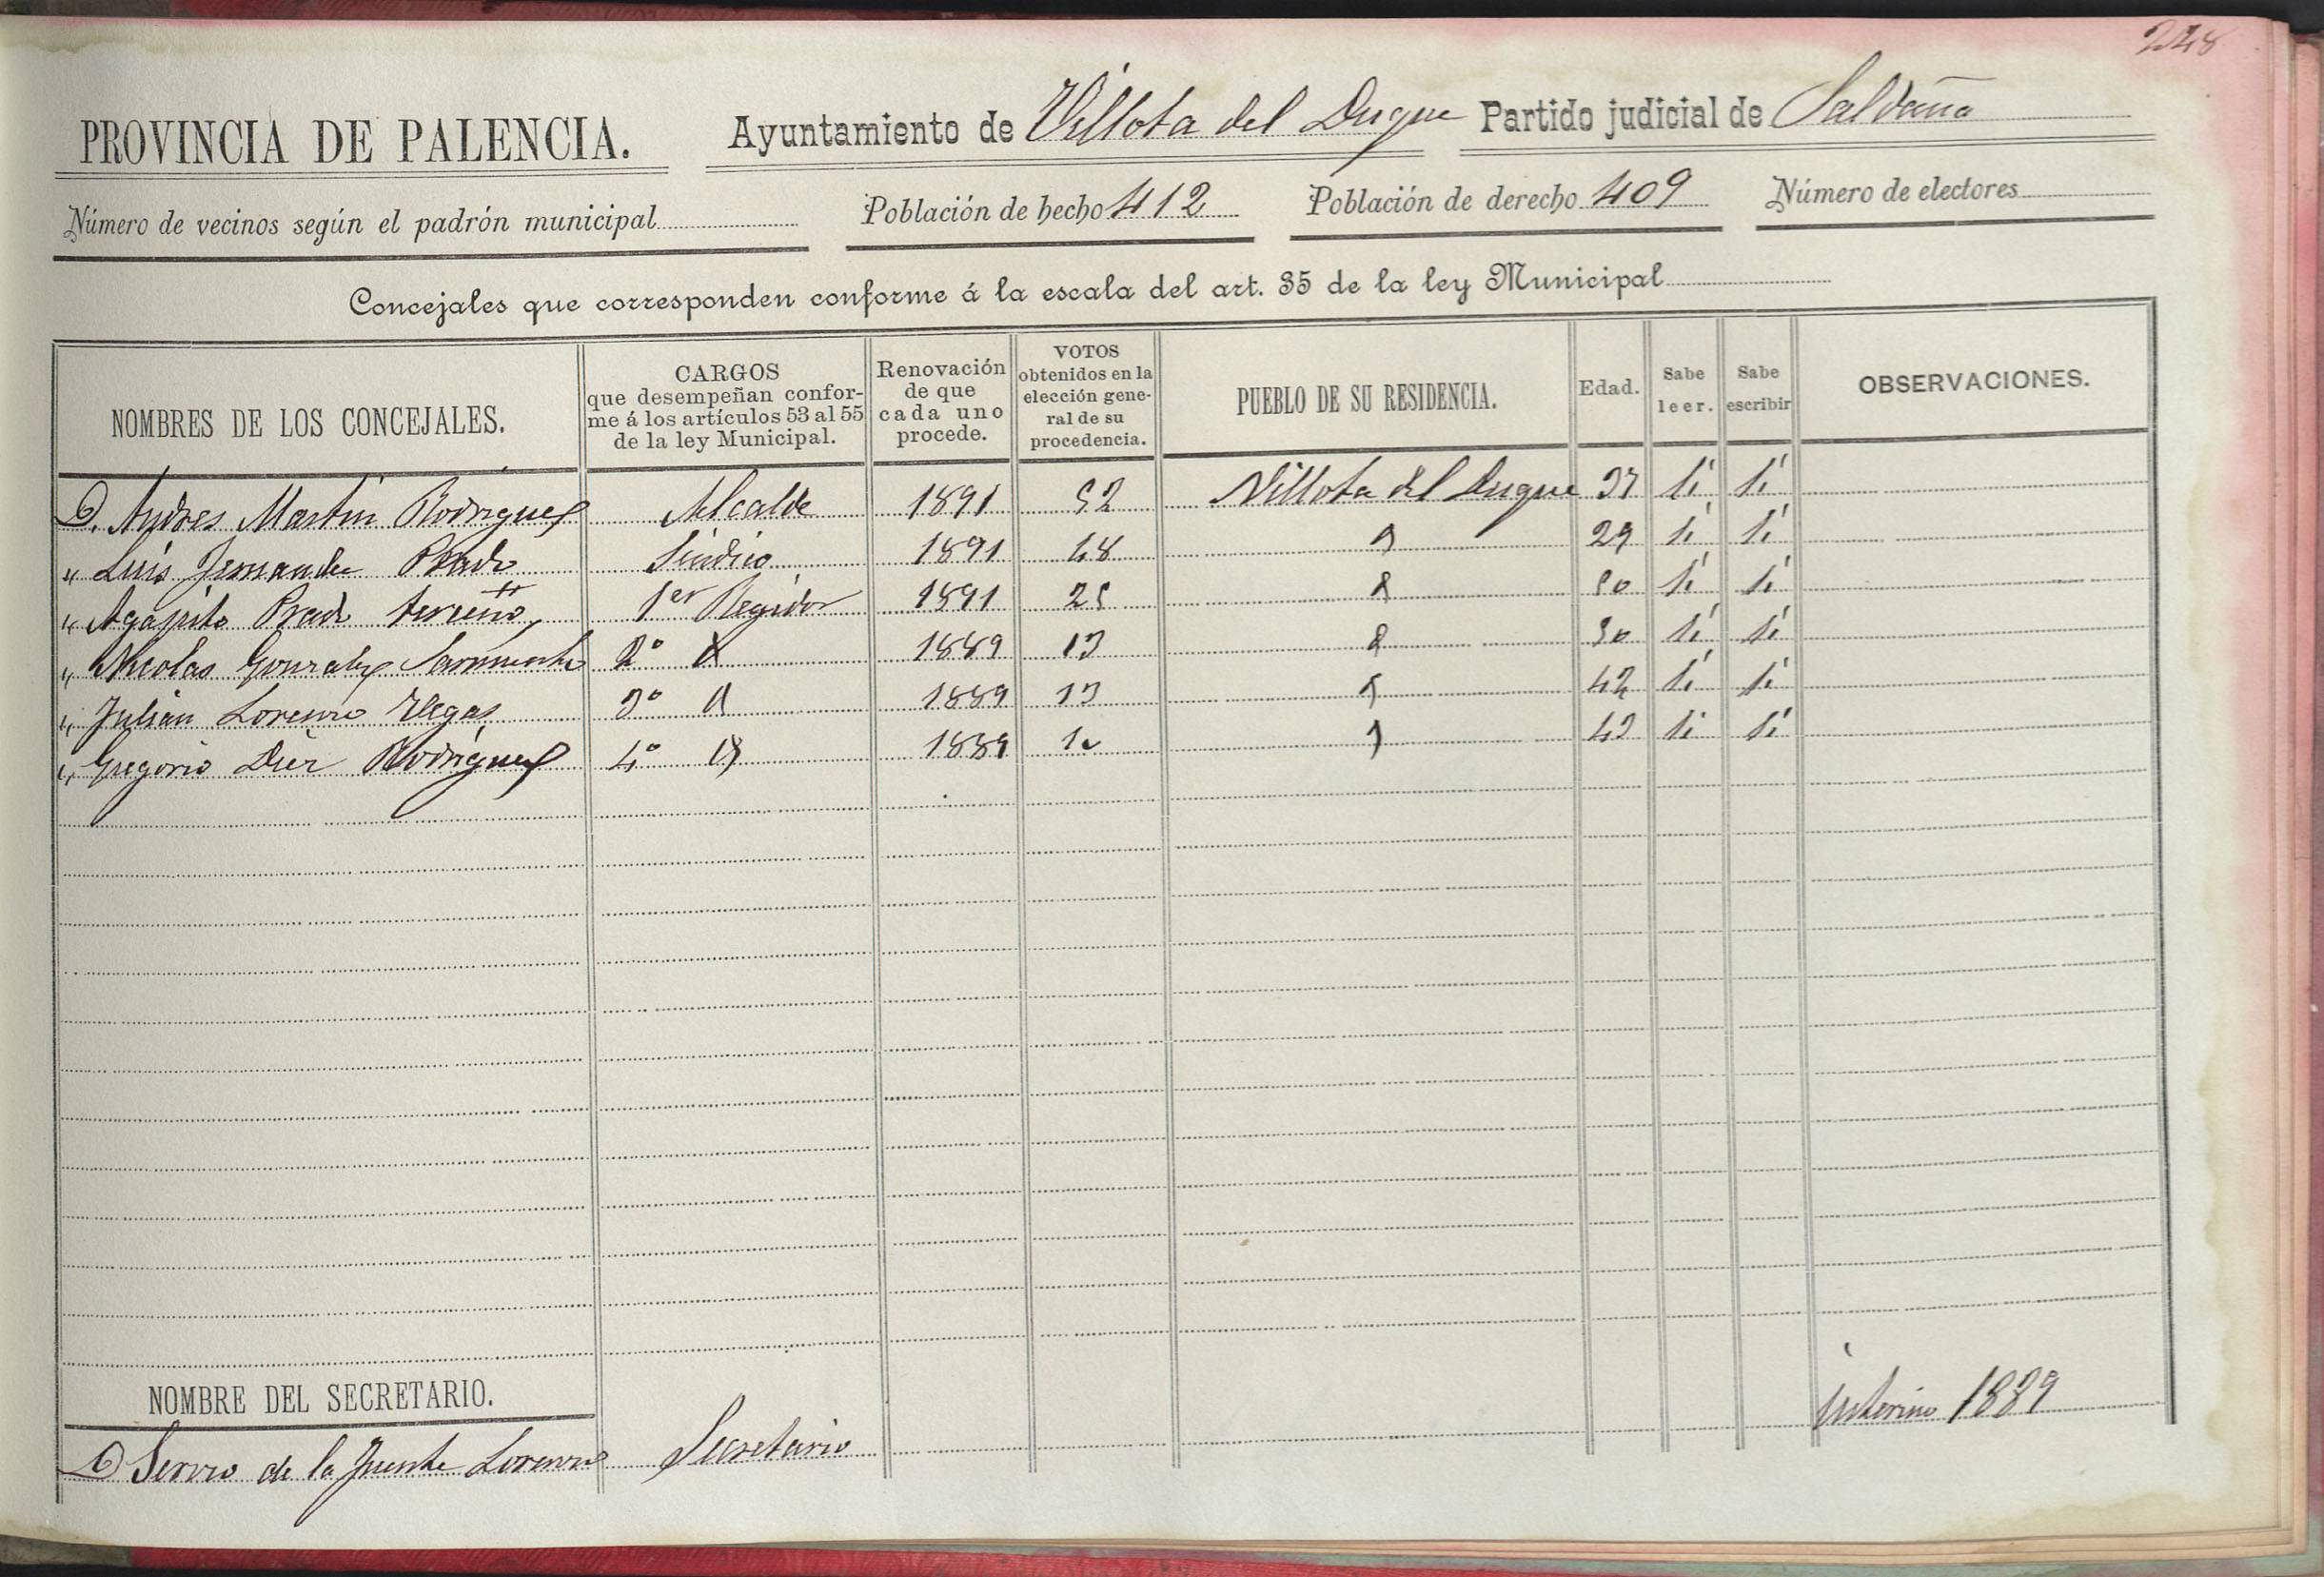 248
PROVINCIA DE PALENCIA. Ayuntamiento de Villota del Duque Partido judicial de Saldaña
Número de vecinos según el padrón municipal Población de hecho 412 Población de derecho 409 Número de electores
Concejales que corresponden conforme á la escala del art. 35 de la ley Municipal
NOMBRES DE LOS CONCEJALES. CARGOS que desempeñan confor-me á los artículos 53 al 55 de la ley Municipal. Renovación de que cada uno procede. VOTOS obtenidos en la elección gene-ral de su procedencia. PUEBLO DE SU RESIDENCIA. Edad. Sabe leer. Sabe escribir OBSERVACIONES.
D. Andres Martin Rodriguez Alcalde 1891 52 Villota del Duque 37 Sí Sí
" Luis Fernandez Prado Sindico 1891 48 " 29 Sí Sí
" Agapito Prado Herrero 1er Regidor 1891 25 " 50 Sí Sí
" Nicolas Gonzalez Sarmiento 2º " 1889 13 " 50 Sí Sí
" Julian Lorenzo Vegas 3º " 1889 13 " 42 Sí Sí
" Gregorio Diez Rodriguez 4º " 1889 10 " 43 Si Sí
NOMBRE DEL SECRETARIO.
D de la Fuente Lorenzo Secretario interino 1889